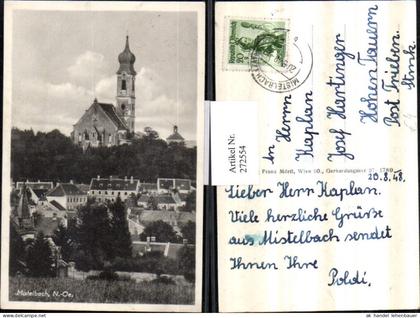 Mistelbach, N.-Oe.
Artikel Nr.
272554
MISTELBACH
An Herrn
Kaplan
Josf Hartinger
Hohen Tauern
Post Trieben.
Stmk
Franz Mörtl, Wien 50., Gerhardusgasse 27. 1780
20.8.48.
Lieber Herr Kaplan.
Viele herzliche Grüße
aus Mistelbach sendet
Ihnen Ihre
Poldi.
ak handel lehenbauer